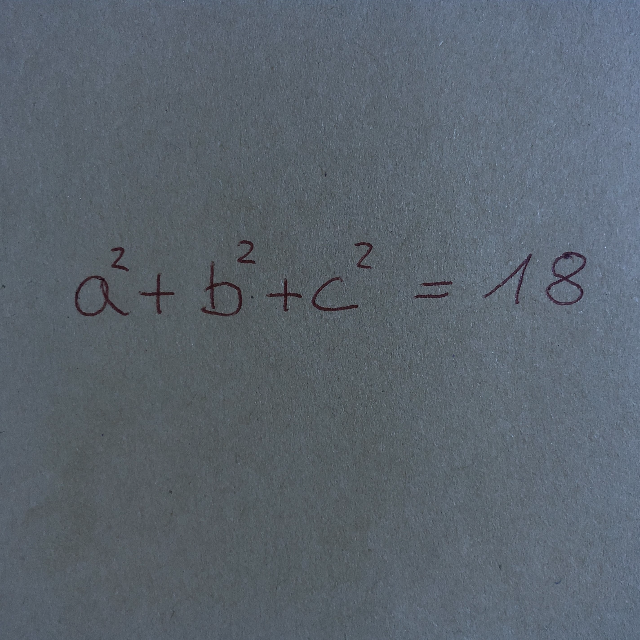 a² + b² + c² = 18